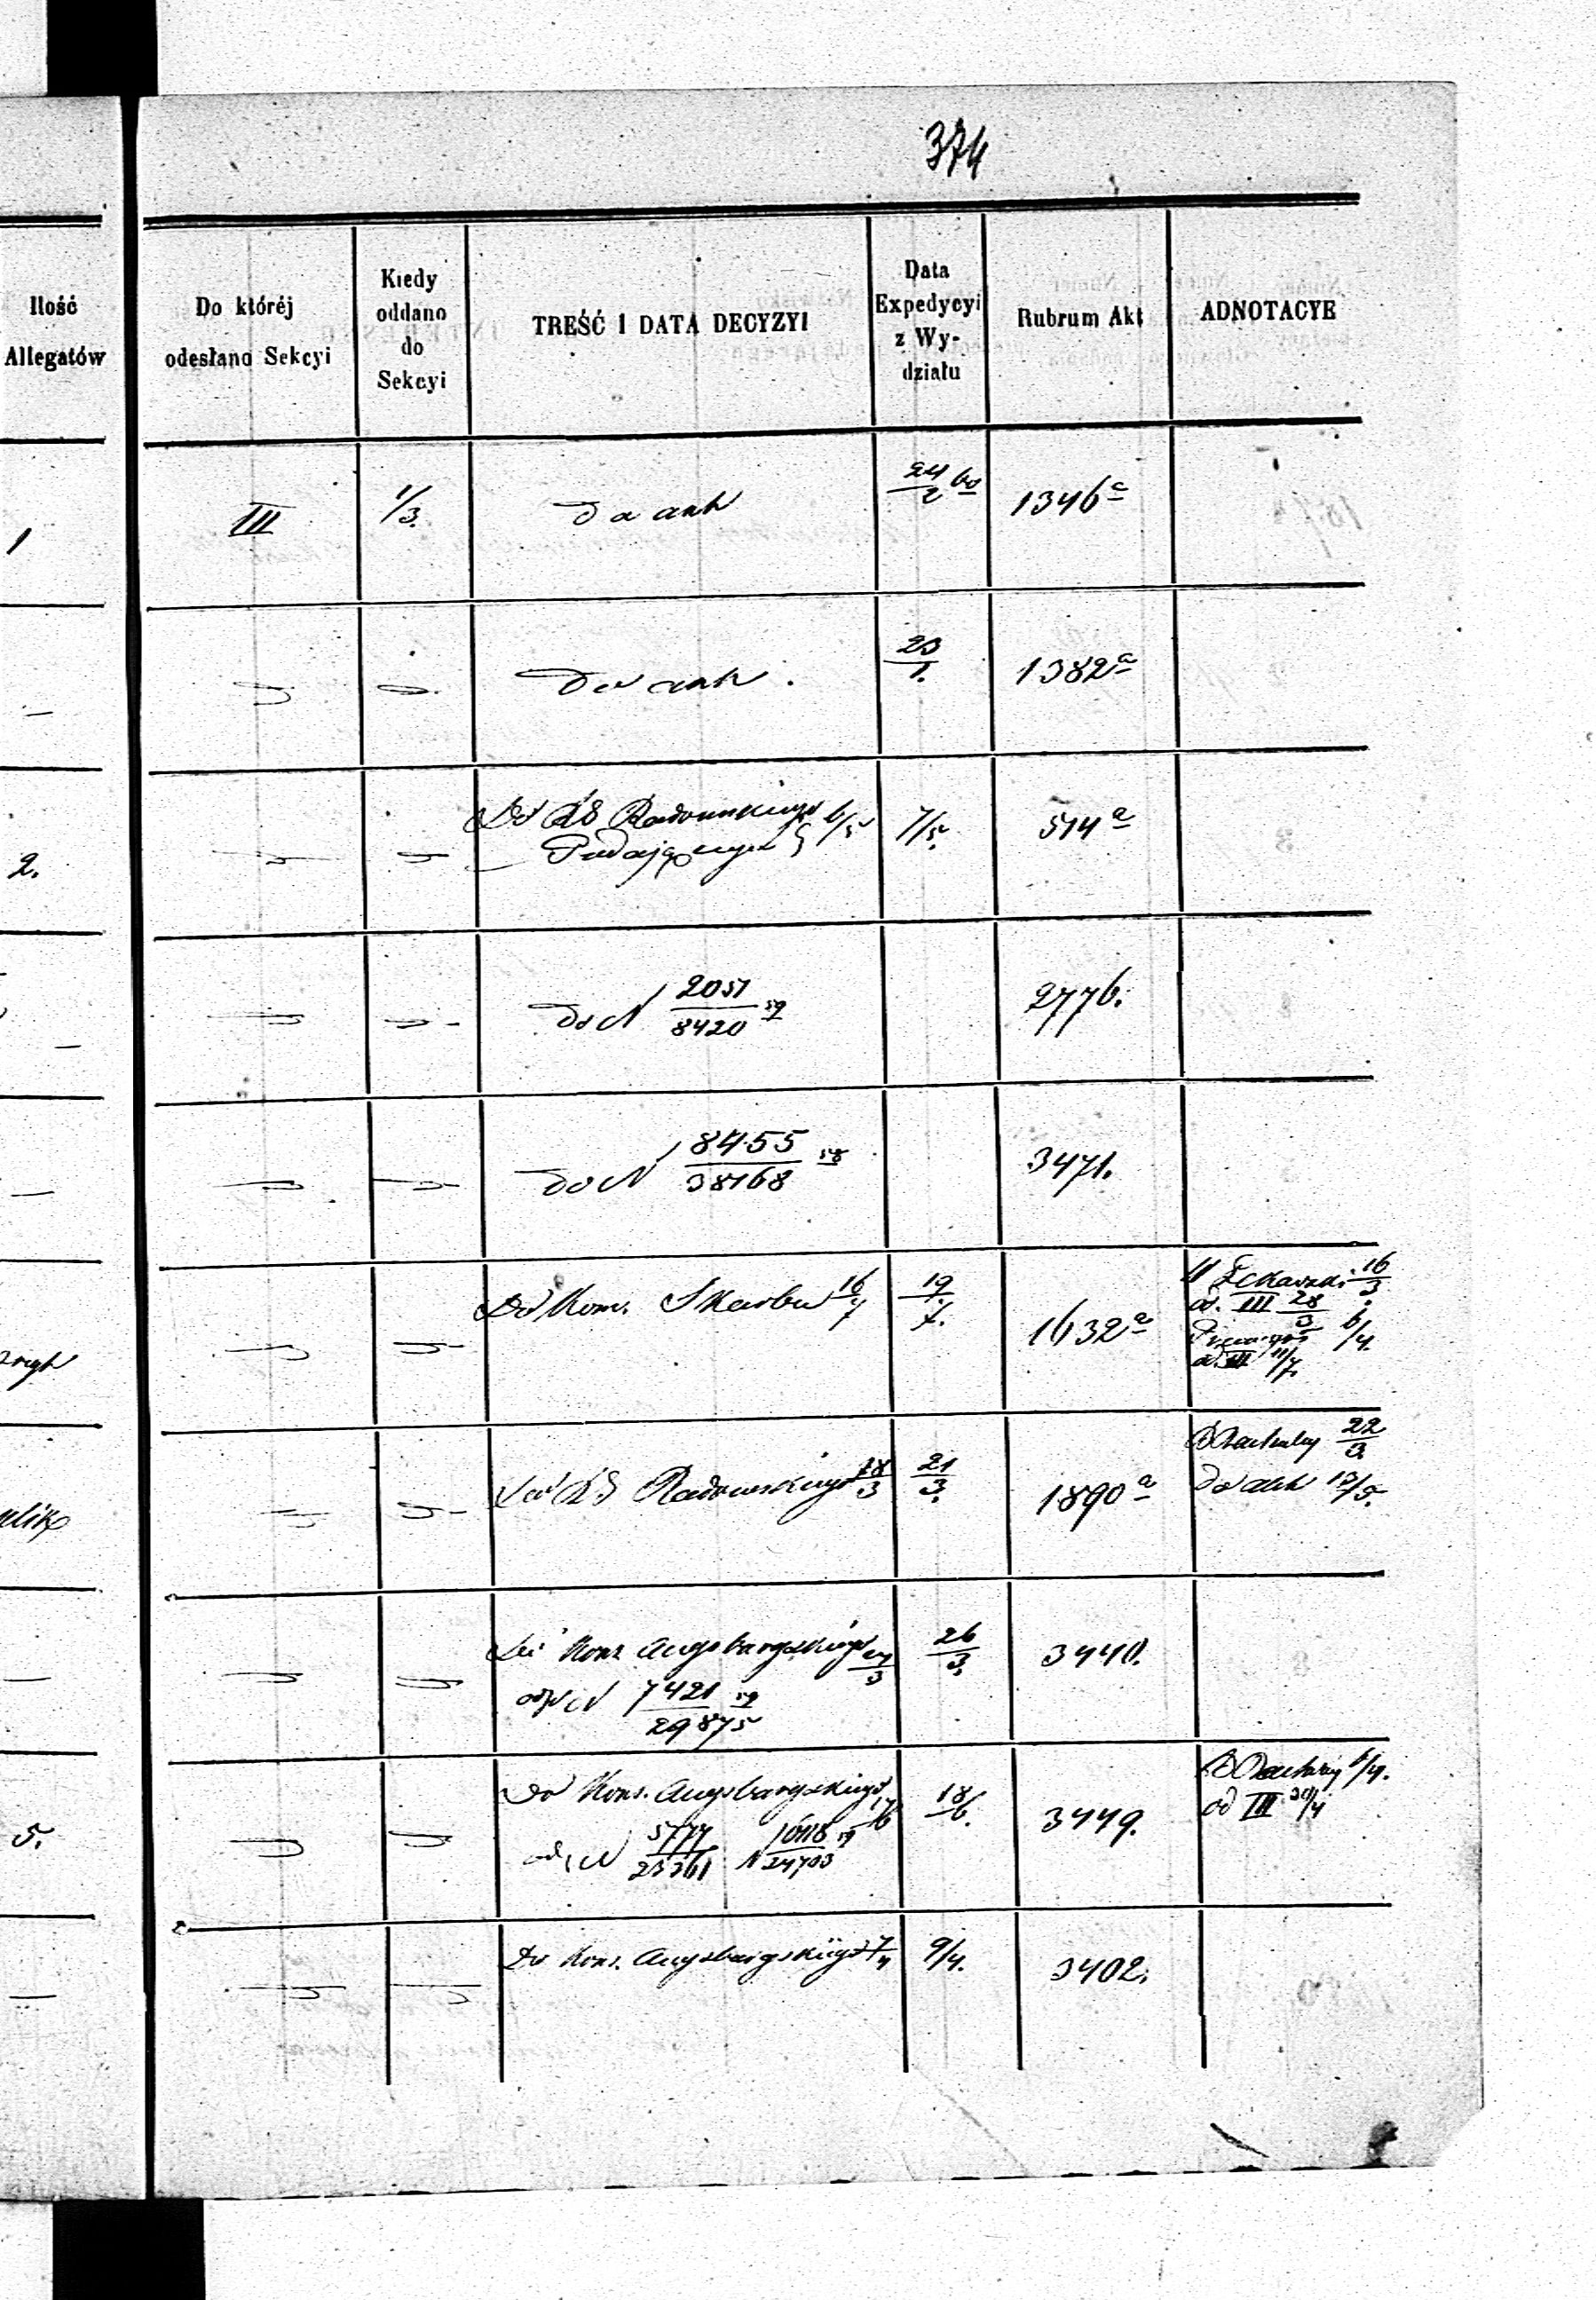 374
Ilość
Allegatów
Do któréj
odesłano Sekcyi
Kiedy
oddano
do
Sekcyi
TREŚĆ I DATA DECYZYI
Data
Expedycyi
z Wy-
działu
Rubrum Akt
ADNOTACYE
1
III
1/3.
do akt
24/2 60
1346 a
do akt.
23/1.
1382 a
2.
Do RG Radomskiego 6/5
Podającego
7/5.
514 a
do N 2051/8420 59
2776.
do N 8455/38168 58
3471.
Do Kom. Skarbu 16/7
19/7.
1632 a
16/3
od. III 28/3
6/4.
od III 11/7.
Do RG Radomskiego 18/3
21/3.
1890 a
22/3.
do akt 13/5.
Do Kons. Augsburgskiego 24/3
26/3.
3440.
N 7421/29875 59
5.
Do Kons. Augsburgskiego 17/6
18/6.
3449.
6/4.
od III 30/4
N 5777/23361 N 24703
Do Kons. Augsburgskiego 7/4
9/4.
3402.